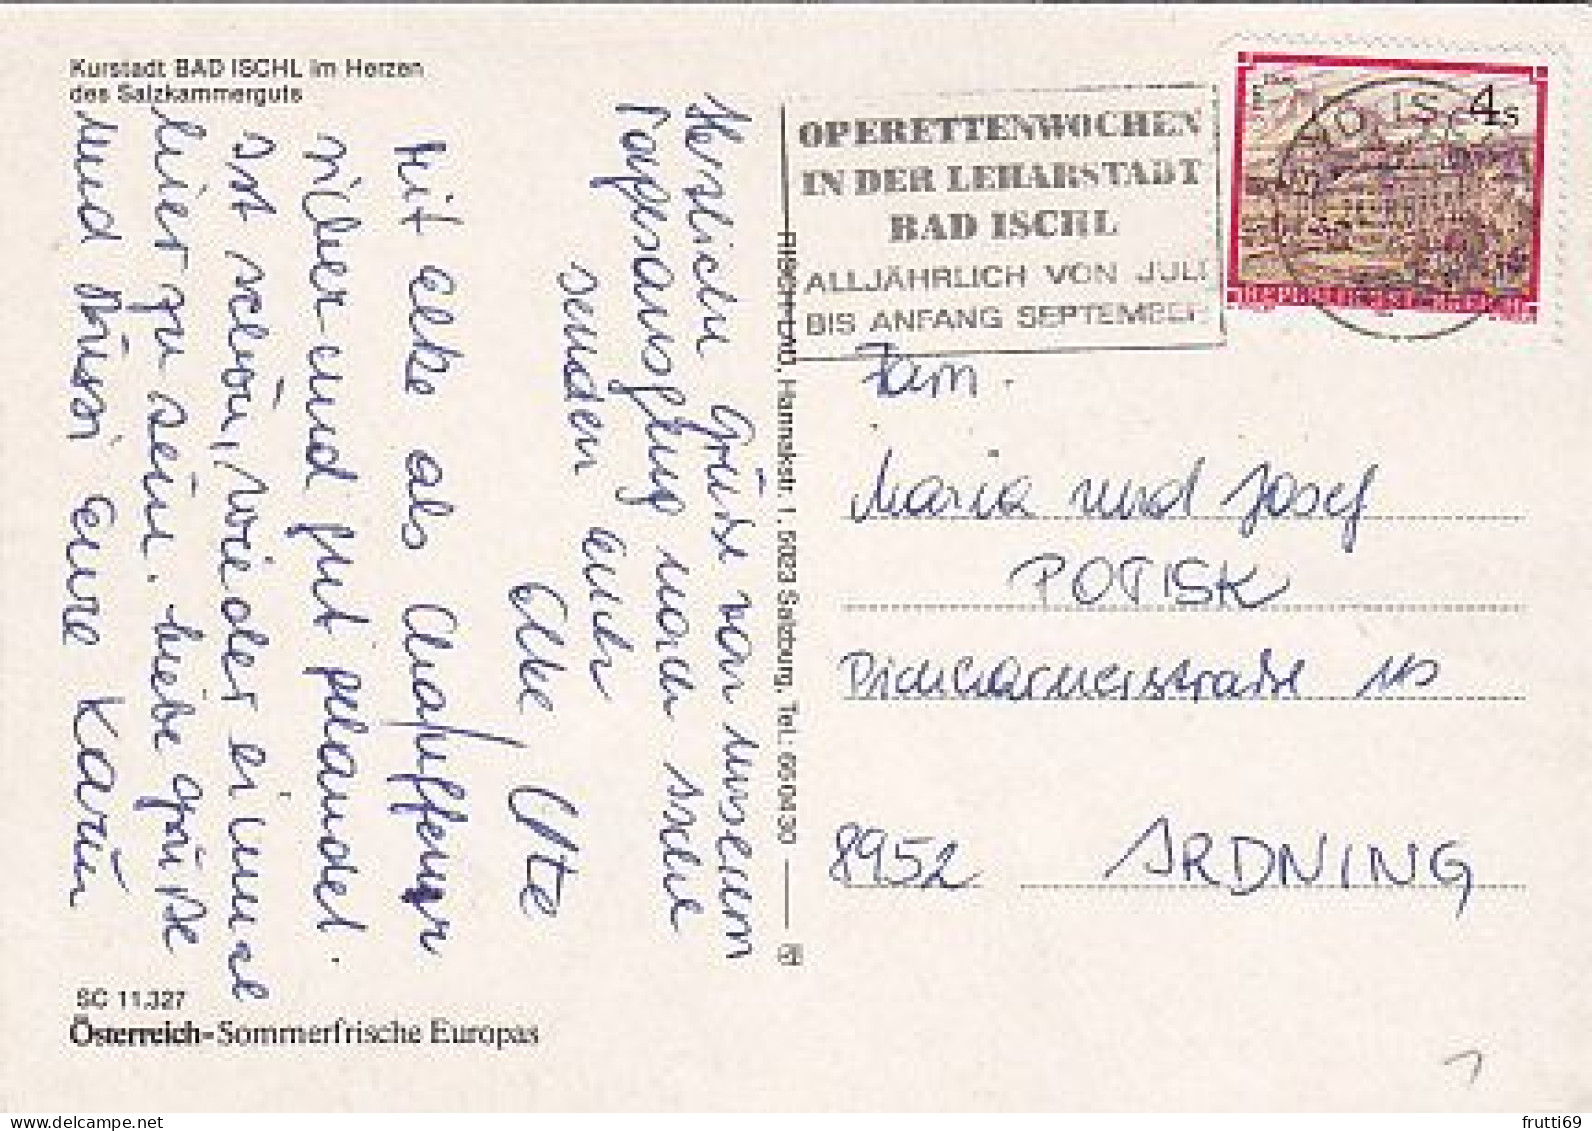 Kurstadt BAD ISCHL im Herzen
des Salzkammerguts
OPERETTENWOCHEN
IN DER LEHARSTADT
BAD ISCHL
ALLJÄHRLICH VON JULI
BIS ANFANG SEPTEMBER
4s
REPUBLIK ÖSTERREICH
Herzliche Grüße von unserem
Tagesausflug nach Ischl
senden euch
Elke Ute
Mit Elke als Chauffeur
sicher und gut gelandet.
Ist schön, wieder einmal
hier zu sein. Liebe Grüße
und Bussi eure Karin
RISCH-LAU, Hannakstr. 1, 5023 Salzburg, Tel.: 66 04 30
Fam.
Maria und Josef
POTISK
115
8952 ARDNING
SC 11.327
Österreich-Sommerfrische Europas
frutti69